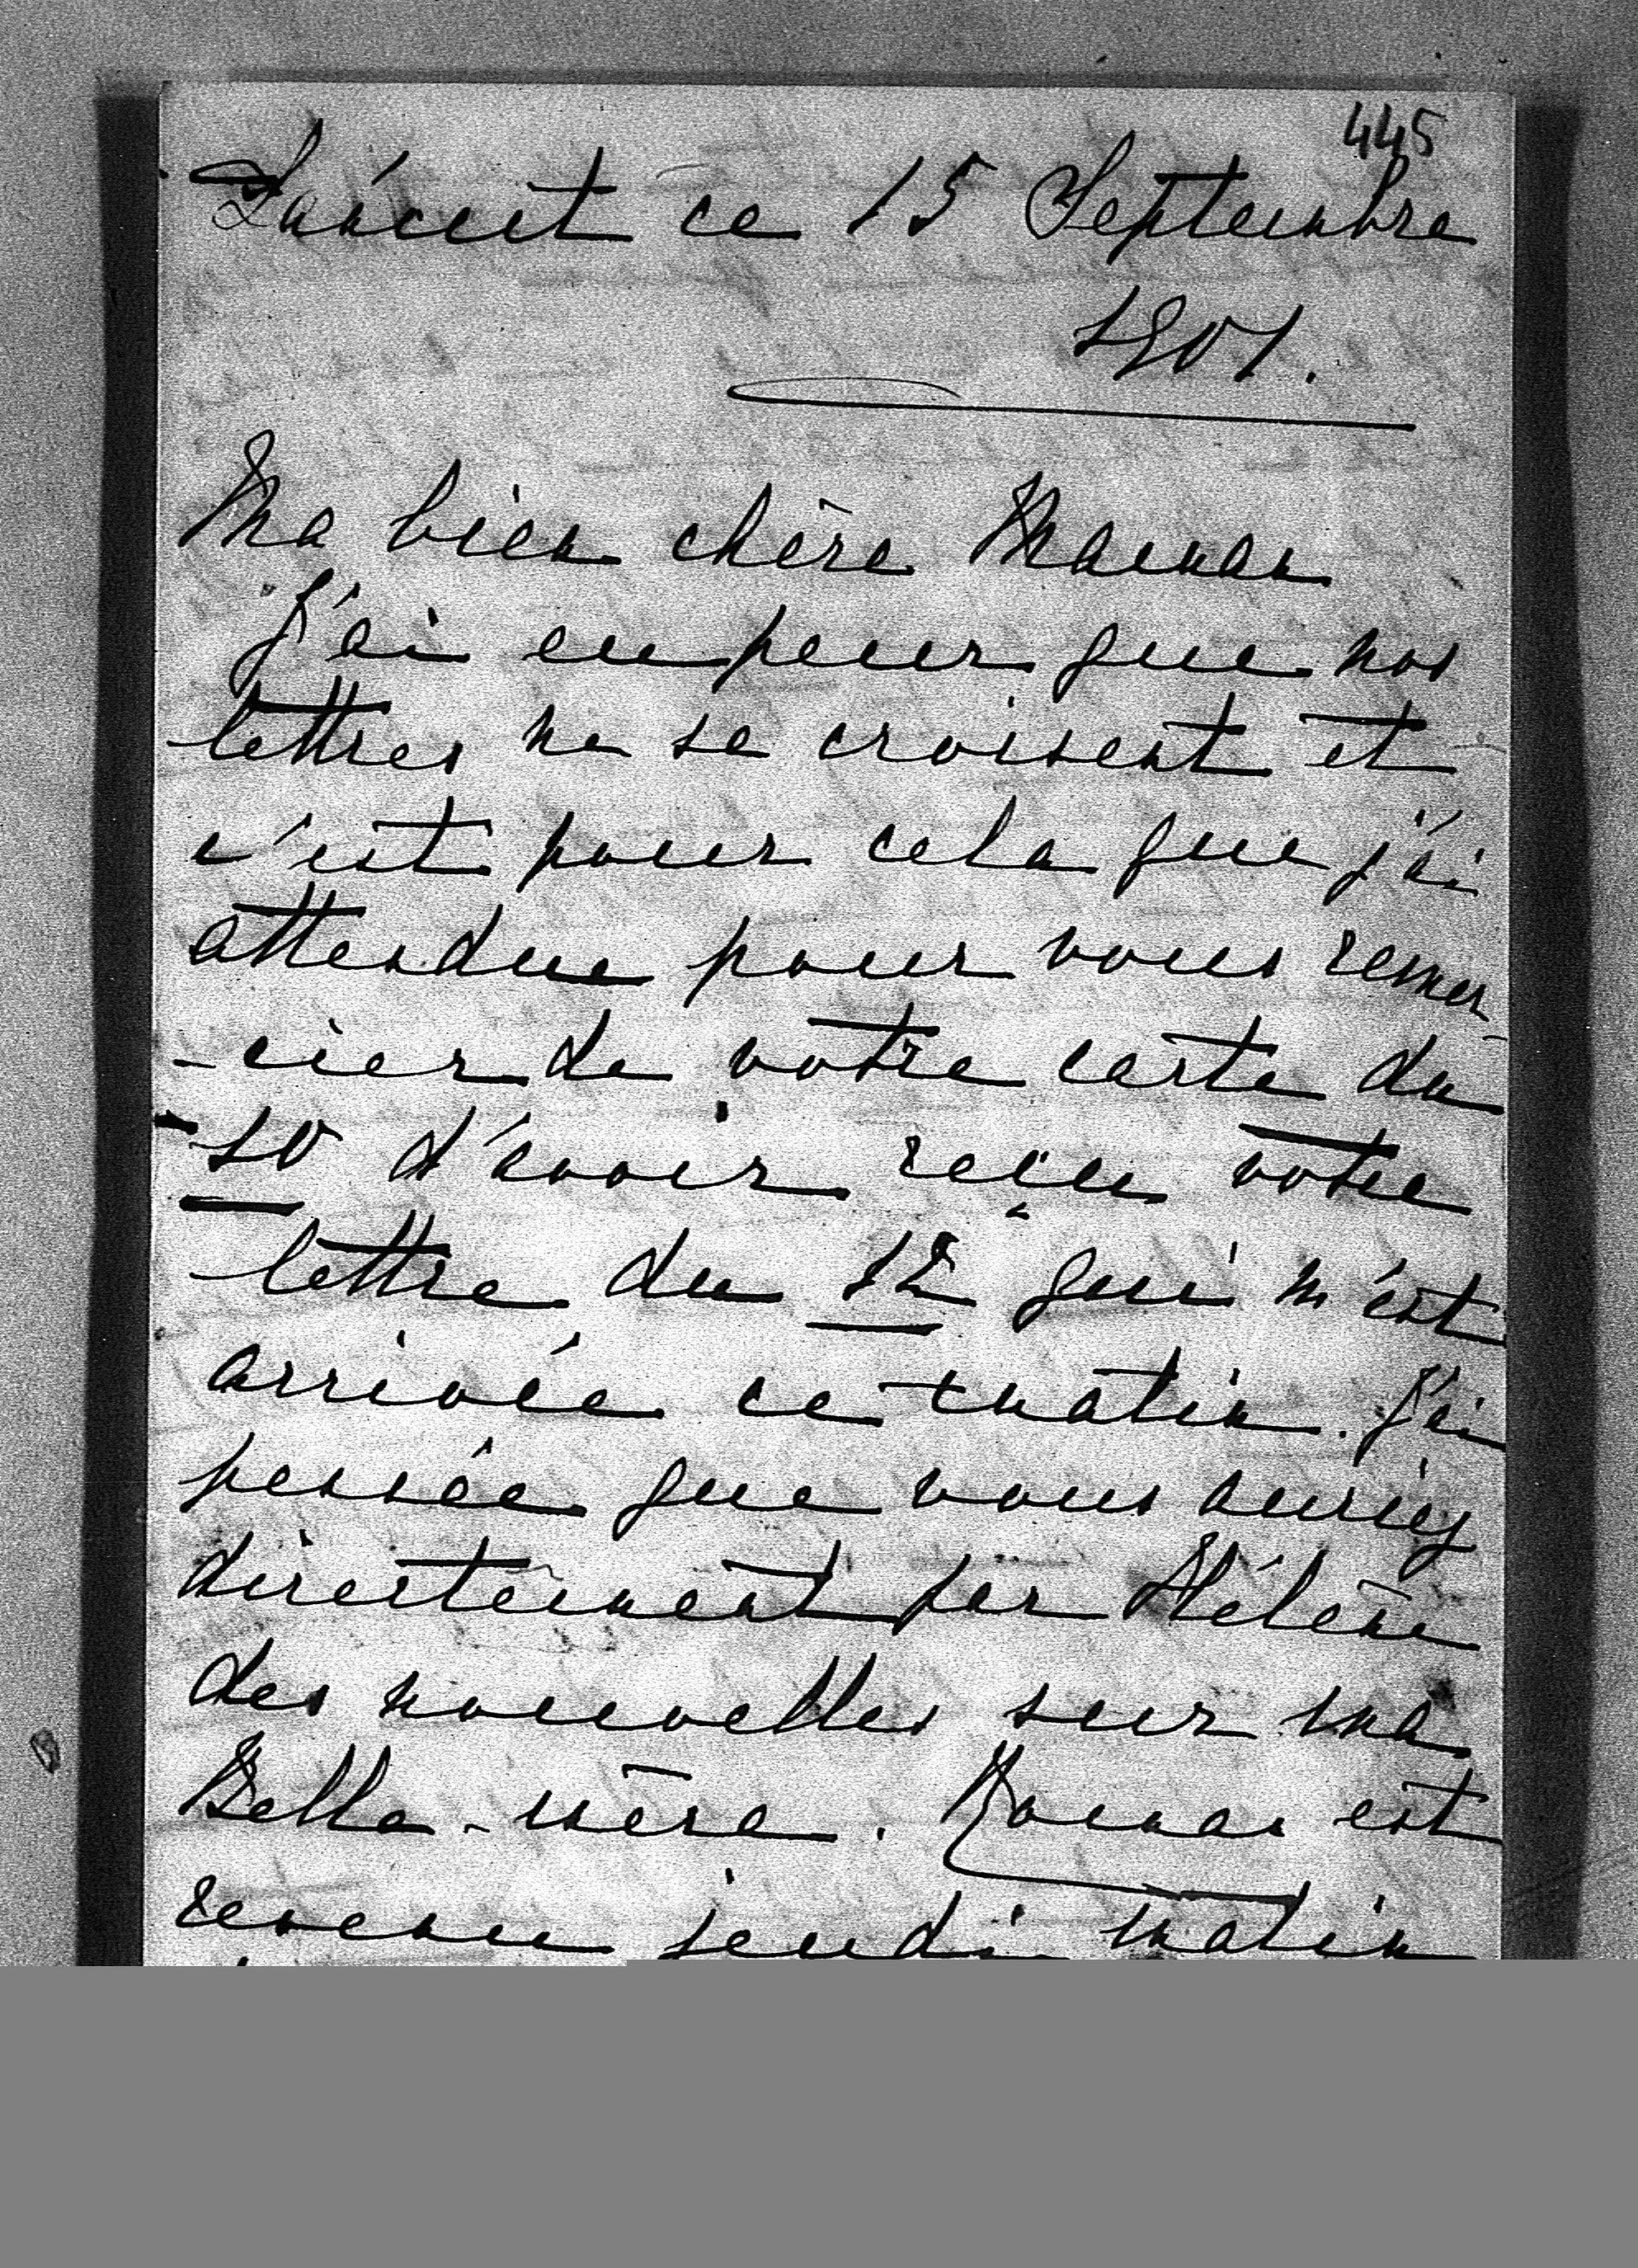 445
Łańcut ce 15 Septembre
1901.
Ma bien chère Maman
J'ai eu peur que nos
lettres ne se croisent et
c'est pour cela que j'ai
attendue pour vous remer
-cier de votre carte du
10 d'avoir reçu votre
lettre du 12 qui m'est
arrivée ce matin. J'ai
pensée que vous auriez
directement par Hélène
des nouvelles sur ma
Belle-mère. Roman est
revenu jeudi matin